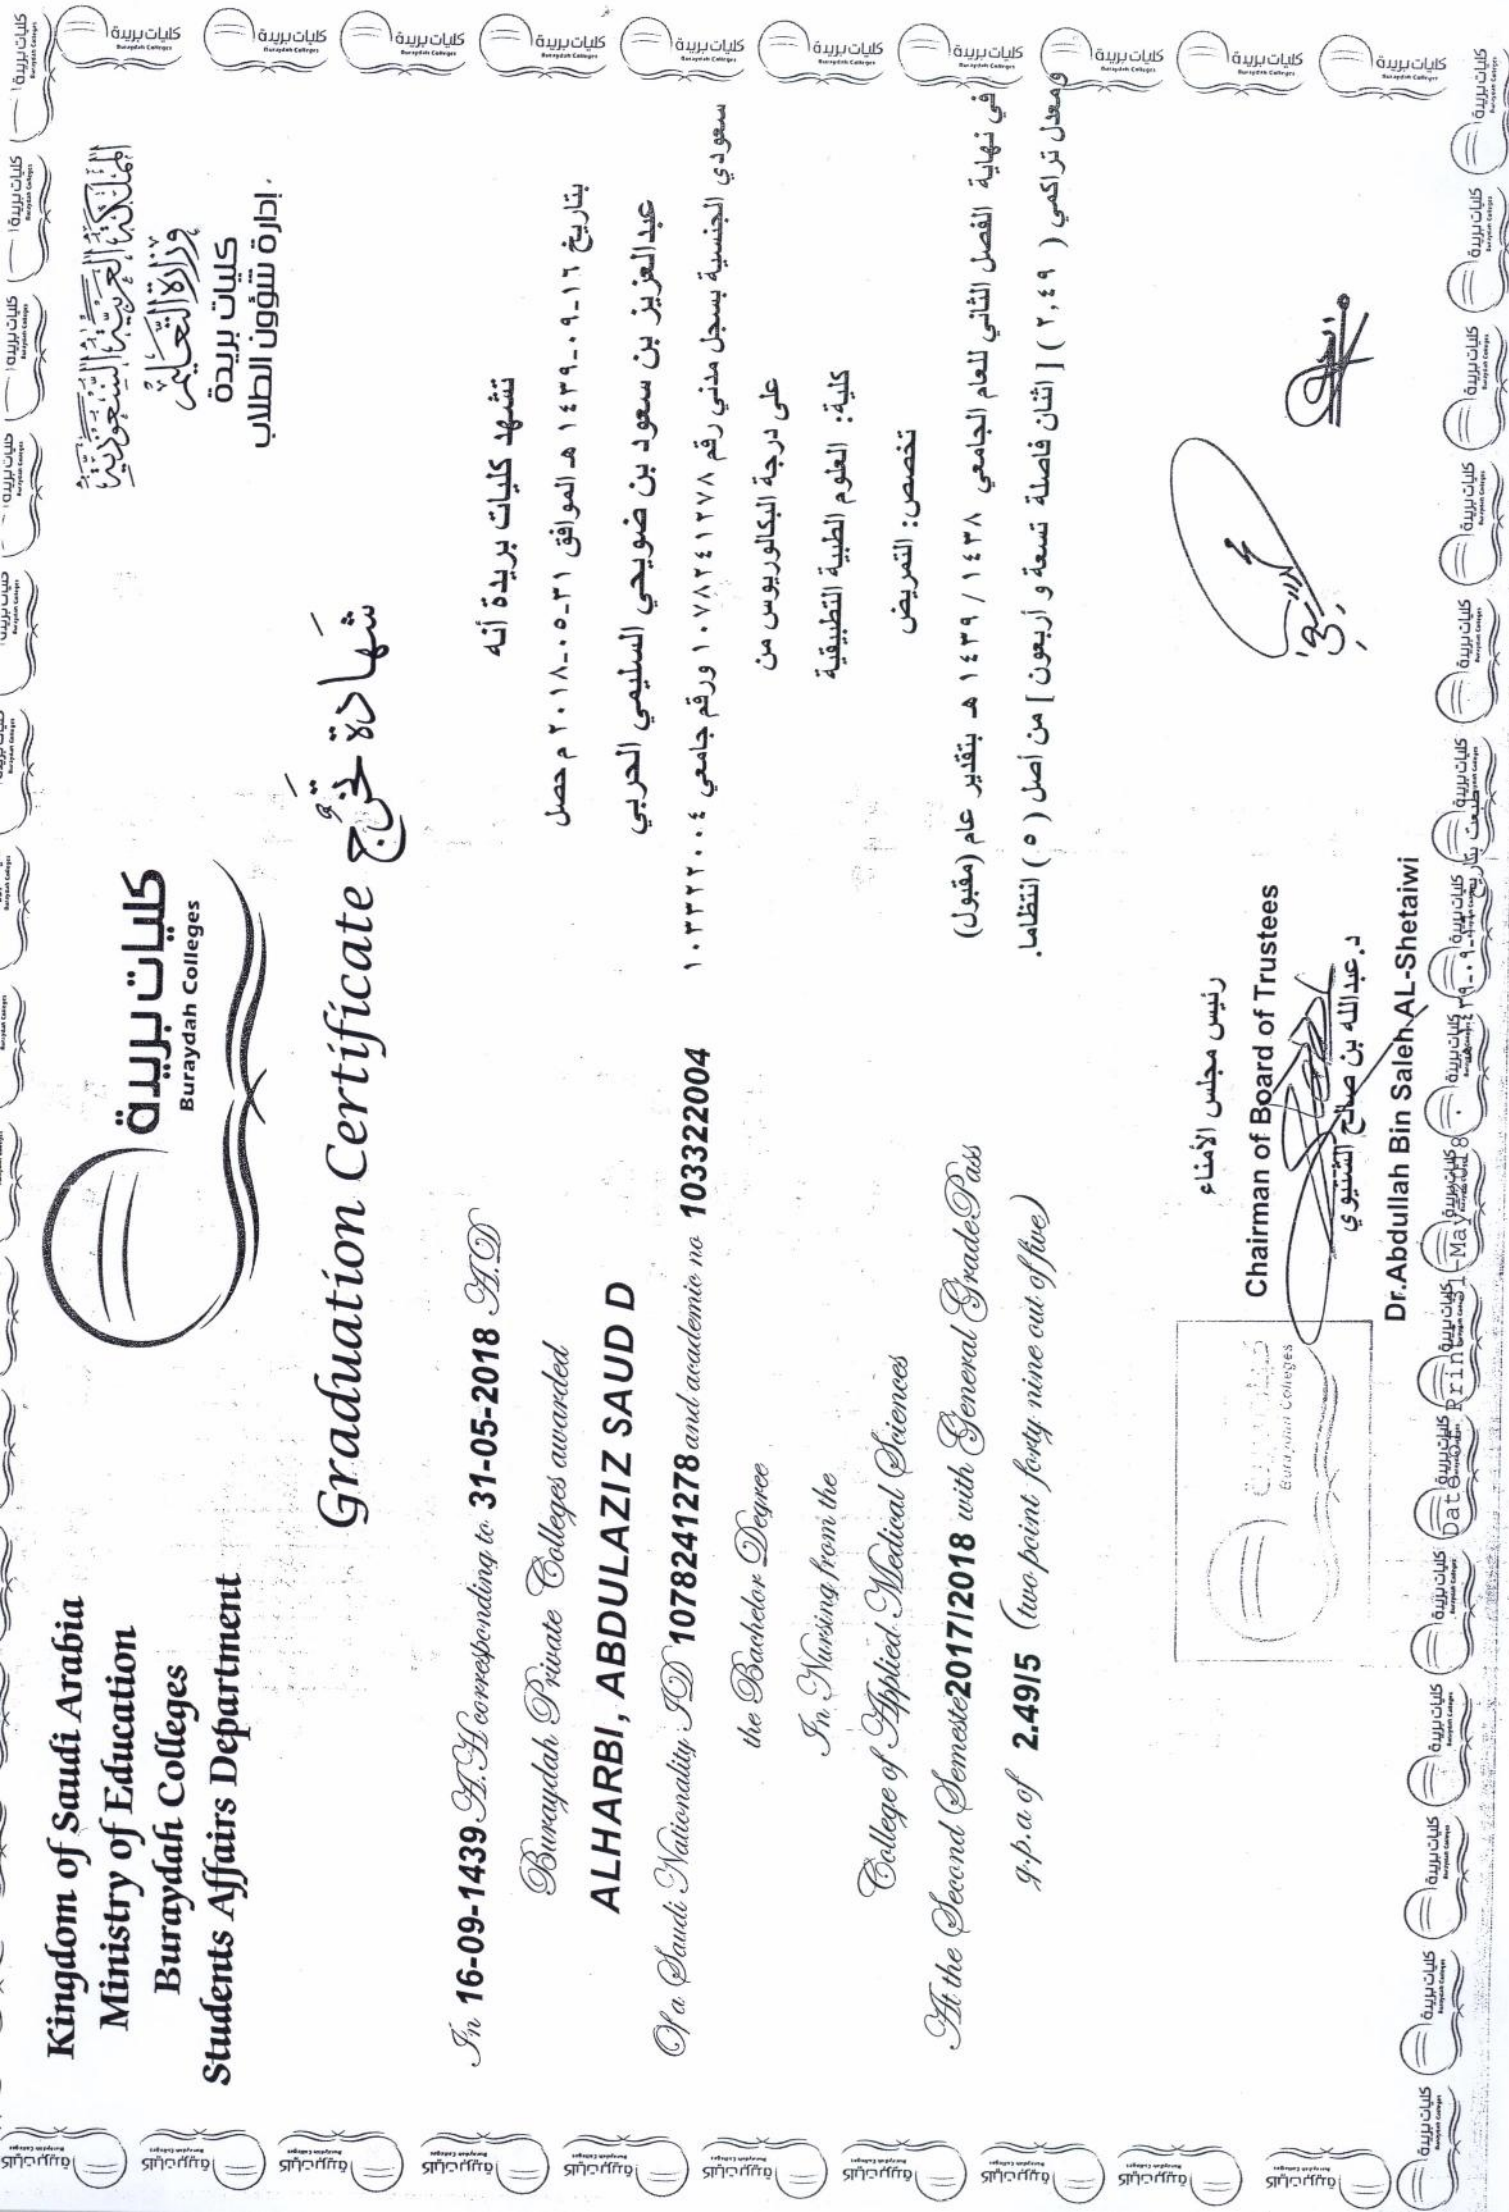 Kingdom of Saudi Arabia
Ministry of Education
Buraydah Colleges
Students Affairs Department
كليات بريدة
Buraydah Colleges
المملكة العربية السعودية
وزارة التعليم
كليات بريدة
إدارة شؤون الطلاب
Graduation Certificate شهادة تخرج
In 16-09-1439 A.H corresponding to 31-05-2018 A.D
Buraydah Private Colleges awarded
ALHARBI, ABDULAZIZ SAUD D
Of a Saudi Nationality ID 1078241278 and academic no 103322004
the Bachelor Degree
In Nursing from the
College of Applied Medical Sciences
At the Second Semeste2017/2018 with General Grade Pass
g.p.a of 2.49/5 (two point forty nine out of five)
تشهد كليات بريدة أنه
بتاريخ ١٦-٠٩-١٤٣٩ هـ الموافق ٣١-٠٥-٢٠١٨ م حصل
عبدالعزيز بن سعود بن ضويحي السليمي الحربي
سعودي الجنسية بسجل مدني رقم ١٠٧٨٢٤١٢٧٨ ورقم جامعي ١٠٣٣٢٢٠٠٤
على درجة البكالوريوس من
كلية: العلوم الطبية التطبيقية
تخصص: التمريض
في نهاية الفصل الثاني للعام الجامعي ١٤٣٨ / ١٤٣٩ هـ بتقدير عام (مقبول)
ومعدل تراكمي ( ٢,٤٩ ) [ اثنان فاصلة تسعة و أربعون ] من أصل ( ٥ ) انتظاما.
رئيس مجلس الأمناء
Chairman of Board of Trustees
د.عبدالله بن صالح الشتيوي
Dr.Abdullah Bin Saleh AL-Shetaiwi
Buraydah Colleges
Date of Print 31-May-2018
طبعت بتاريخ